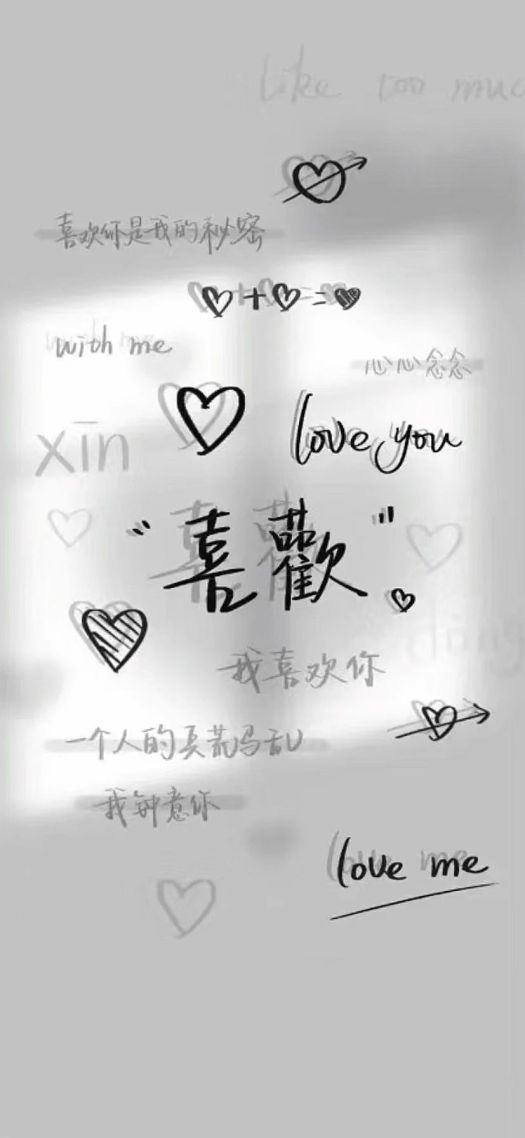 like too muc
喜欢你是我的秘密
with me
心心念念
xīn
love you
“喜歡”
dòng
我喜欢你
一个人的兵荒马乱
我钟意你
love me